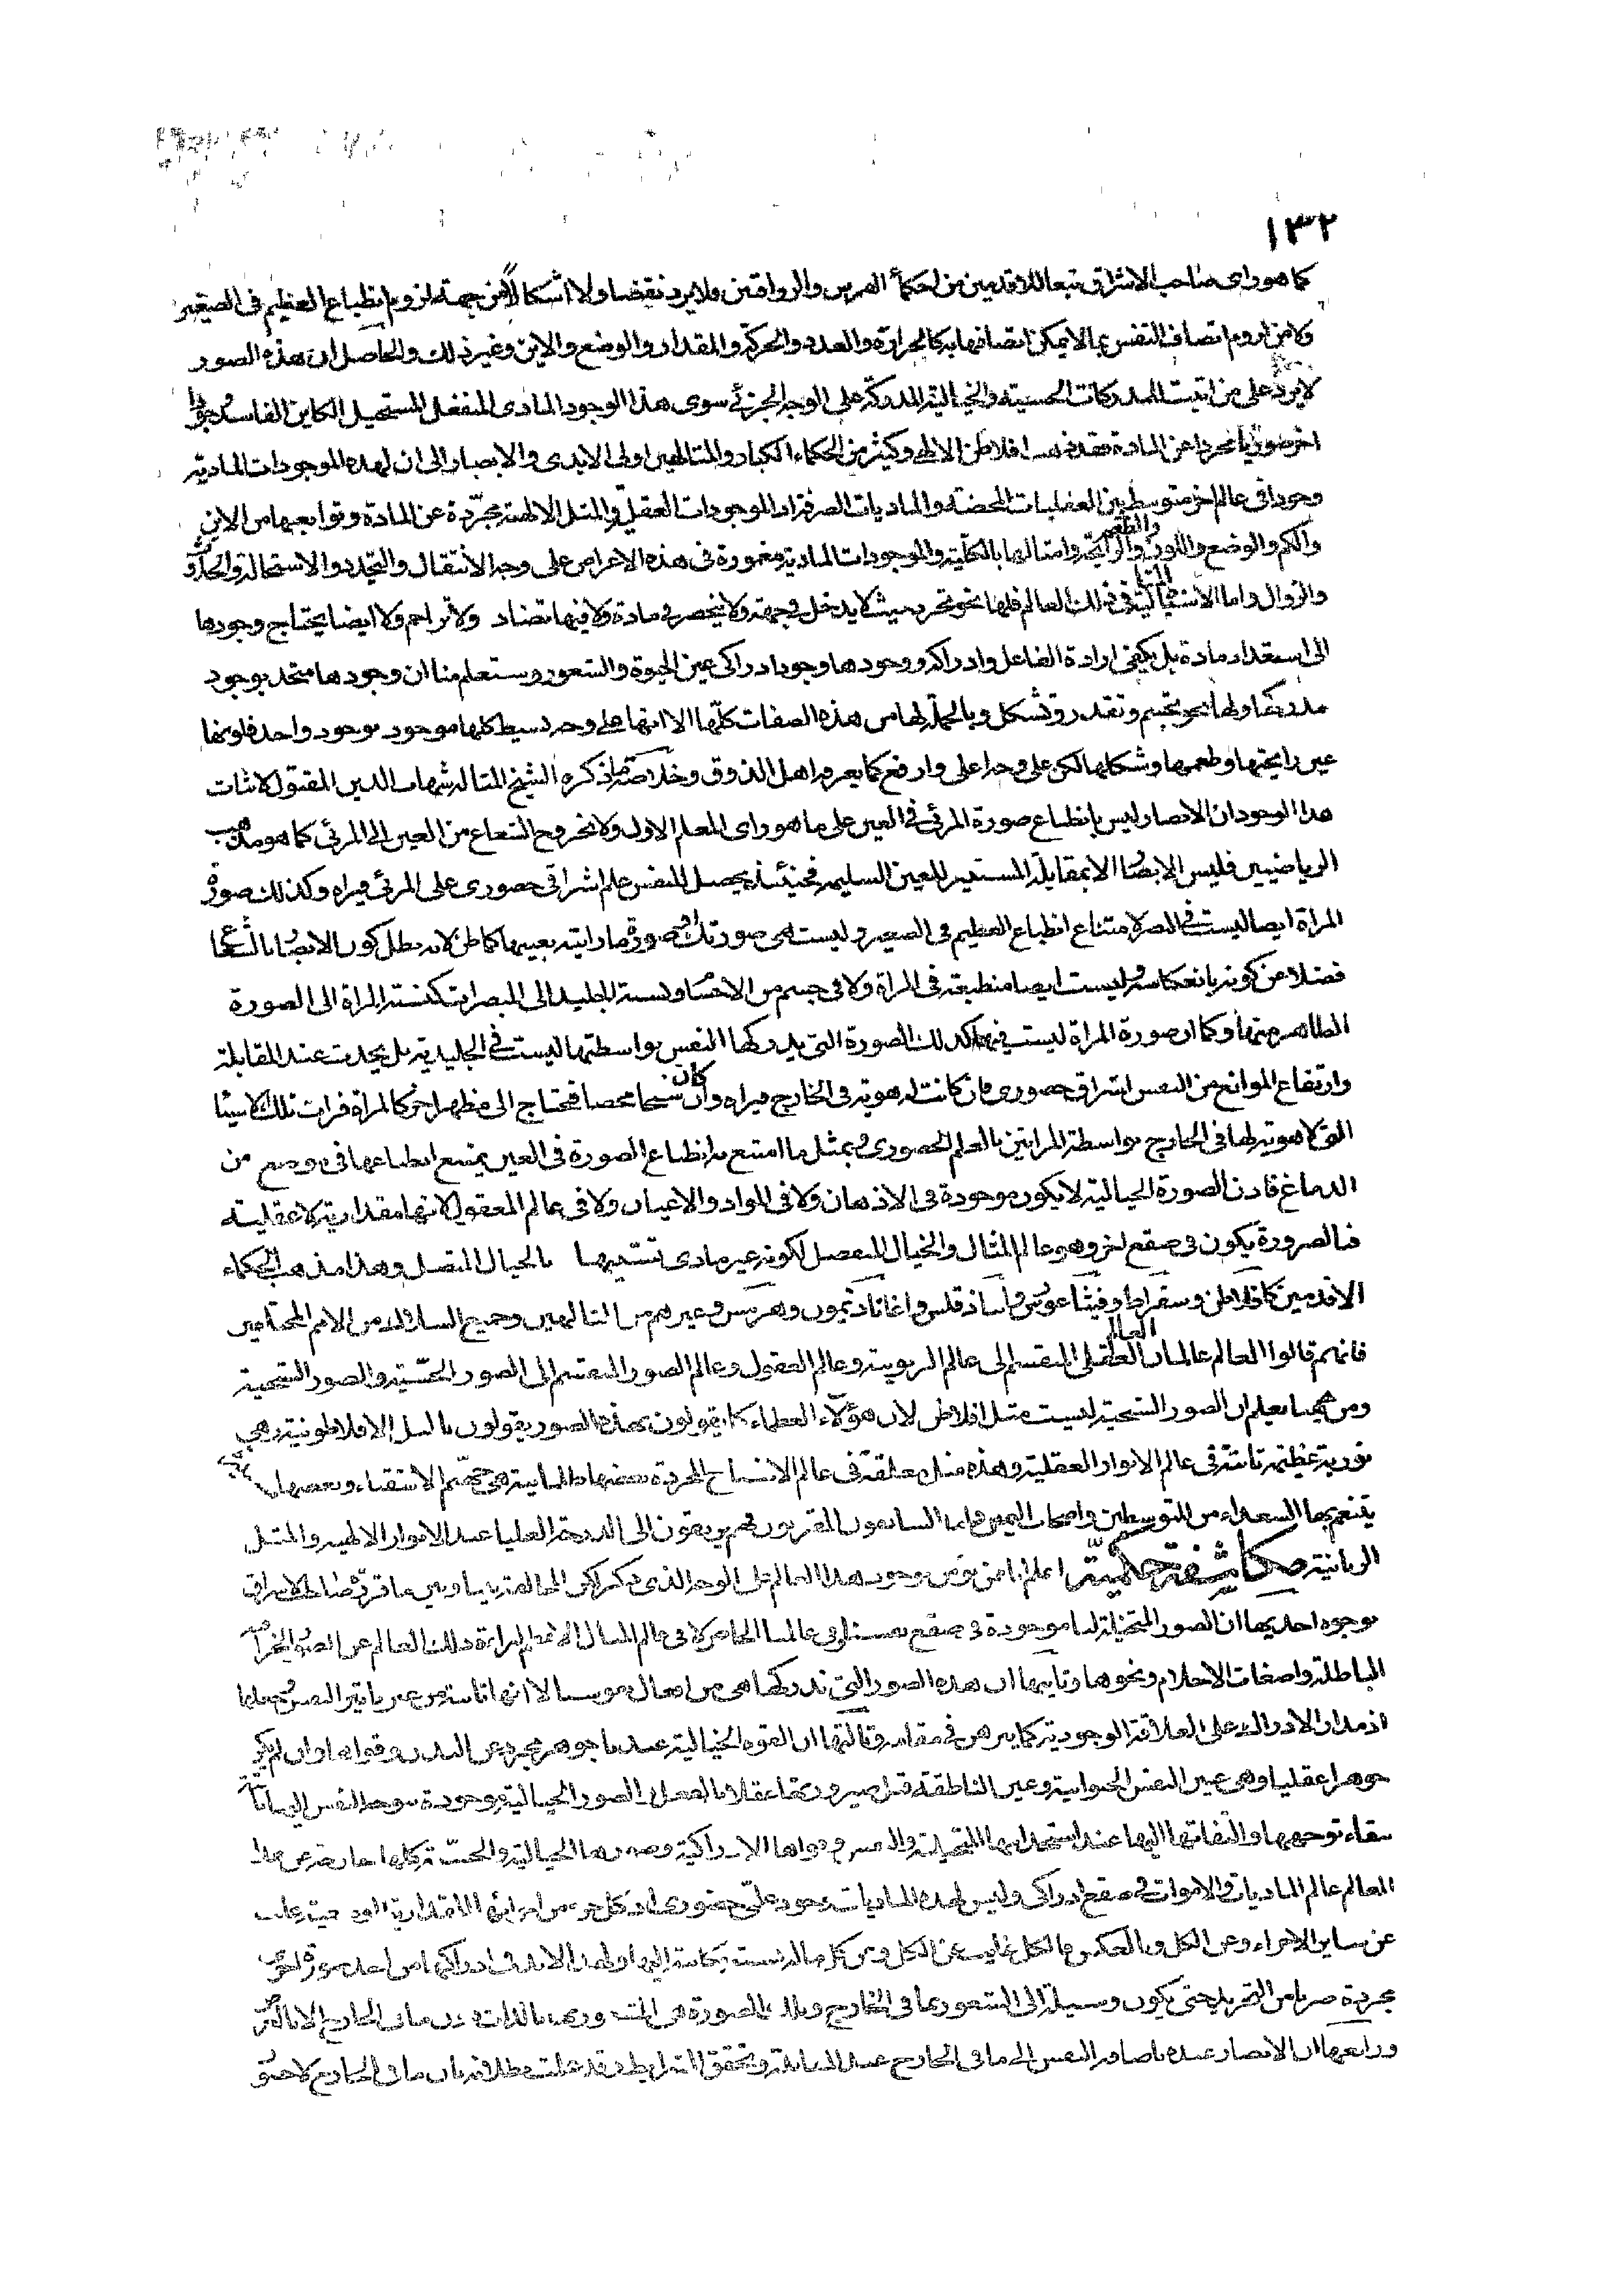 ١٣٢
كما هو راى صاحب الاشراق تبعا للاقدمين من حكماء الفرس والرواقيين فلا يرد نقضا ولا اشكالا من جهة لزوم انطباع العظيم فى الصغير
ولا من لزوم اتصاف النفس بما لا يمكن اتصافها به كالحرارة والعدد والحركة والمقدار والوضع والاين وغير ذلك والحاصل ان هذه الصور
لا يرد على من اثبت للمدركات الحسية والخيالية المدركة على الوجه الجزئي سوى هذا الوجود المادى المنفعل المستحيل الكاين الفاسد وجودا
اخر صوريا مجردا عن المادة فقد ذهب افلاطن الالهى وكثير من الحكماء الكبار والمتالهين اولى الايدى والابصار الى ان لهذه الموجودات المادية
وجودا فى عالم اخر متوسط بين العقليات المحضة والماديات الصرفة اذ الموجودات العقلية والمثل الالهية مجردة عن المادة وتوابعها من الاين
والكم والوضع واللون والطعم والرايحة وامثالها بالكلية والموجودات المادية مغمورة فى هذه الاعراض على وجه الانتقال والتجدد والاستحالة والحدوث
والزوال واما الاشباح المثالية فى ذلك العالم فلها نحو تجرد حيث لا يدخل فى جهة ولا ينحصر فى مادة ولا فيها تضاد ولا تزاحم ولا ايضا يحتاج وجودها
الى استعداد مادة بل يكفى ارادة الفاعل وادراكه ووجودها وجود ادراكى عين الحيوة والشعور وستعلم منا ان وجودها متحد بوجود
مدركها ولها نحو تجسم وتقدر وتشكل وبالجملة لها من هذه الصفات كلها الا انها على وجه بسيط كلها موجود بوجود واحد فلونها
عين رايحتها وطعمها وشكلها لكن على وجه اعلى وارفع كما يعرفه اهل الذوق وخلاصة ما ذكره الشيخ المتاله شهاب الدين المقتول لاثبات
هذا الوجود ان الابصار ليس بانطباع صورة المرئى فى العين على ما هو راى المعلم الاول ولا بخروج الشعاع من العين الى المرئى كما هو مذهب
الرياضيين فليس الابصار الا بمقابلة المستنير للعين السليمة فحينئذ يحصل للنفس علم اشراقى حضورى على المرئى فيراه وكذلك صورة
المراة ايضا ليست فى البصر لامتناع انطباع العظيم فى الصغير وليست هى صورتك او صورة ما رايته بعينها كما ظن لانه بطل كون الابصار بالشعاع
فضلا عن كونه بانعكاسه وليست ايضا منطبعة فى المراة ولا فى جسم من الاجسام ونسبة الجليدية الى المبصرات كنسبة المراة الى الصورة
الظاهرة منها وكما ان صورة المراة ليست فيها كذلك الصورة التى يدركها النفس بواسطتها ليست فى الجليدية بل يحدث عند المقابلة
وارتفاع الموانع من النفس اشراق حضورى فان كانت له هوية فى الخارج فيراه وان كان شبحا محضا فيحتاج الى مظهر اخر كالمراة فرات تلك الاشياء
التى لا هوية لها فى الخارج بواسطة المرايتين بالعلم الحضورى وبمثل ما امتنع به انطباع الصورة فى العين يمتنع انطباعها فى موضع من
الدماغ فاذن الصورة الخيالية لا يكون موجودة فى الاذهان ولا فى المواد والاعيان ولا فى عالم العقول لانها مقدارية لا عقلية
فبالضرورة يكون فى صقع اخر وهو عالم المثال والخيال المنفصل لكونه غير مادى تشبيها بالخيال المتصل وهذا مذهب الحكماء
الاقدمين كافلاطن وسقراط وفيثاغورس وانباذقلس واغاثاذيمون وهرمس وغيرهم من المتالهين وجميع السلاك من الامم المختلفين
فانهم قالوا العالم عالمان العالم العقلى المنقسم الى عالم الربوبية وعالم العقول وعالم الصور المنقسم الى الصور الحسية والصور الشبحية
ومن ههنا يعلم ان الصور الشبحية ليست مثل افلاطن لان هؤلاء العظماء كما يقولون بهذه الصور يقولون بالمثل الافلاطونية وهى
نورية عظيمة ثابتة فى عالم الانوار العقلية وهذه مثل معلقة فى عالم الاشباح المجردة بعضها ظلمانية هى جهنم الاشقياء وبعضها
يتنعم بها السعداء من المتوسطين واصحاب اليمين واما السابقون المقربون فهم يرتقون الى الدرجة العليا عند الانوار الالهية والمثل
الربانية مكاشفة حكمية اعلم انا ممن يؤمن بوجود هذا العالم على الوجه الذى ذكر لكن المخالفة بيننا وبين ما قرره صاحب الاشراق
بوجوه احديها ان الصور المتخيلة لنا موجودة فى صقع نفسنا وفى عالمنا الخاص لا فى عالم المثال الاعظم لبراءة ذلك العالم عن الصور الجزافية
الباطلة واضغاث الاحلام ونحوها وثانيها ان هذه الصور التى ندركها هى من افعال نفوسنا لا انها ثابتة من غير تاثير النفس وجعلها
اذ مدار الادراك على العلاقة الوجودية كما يبرهن فى مقامه وثالثها ان القوة الخيالية عندنا جوهر مجرد عن البدن وقواه وان لم يكن
جوهرا عقليا وهى عين النفس الحيوانية وعين الناطقة قبل صيرورتها عقلا بالفعل والصور الخيالية موجودة بوجه النفس اليها باقية
ببقاء توجهها والتفاتها اليها عند استخدامها المتخيلة والنفس وقواها الادراكية وصورها الخيالية والحسية كلها خارجة عن هذا
العالم عالم الماديات والاموات فى صقع ادراكى وليس لهذه الماديات وجود علمى حضورى اذ كل جزء من اجزائه المقدارية
عن ساير الاجزاء وعن الكل وبالعكس فالكل غايب عن الكل وعن كل ما له نسبة اليها ولهذا لابد فى ادراكها من اخذ صورة اخرى
مجردة ضربا من التجريد حتى يكون وسيلة الى الشعور بما فى الخارج وتلك الصورة هى بالذات دون ما فى الخارج الا بالعرض
ورابعها ان الابصار عنده باضافة النفس الى ما فى الخارج عند المقابلة وتحقق الشرايط وقد علمت بطلانه بان ما فى الخارج لا حضور